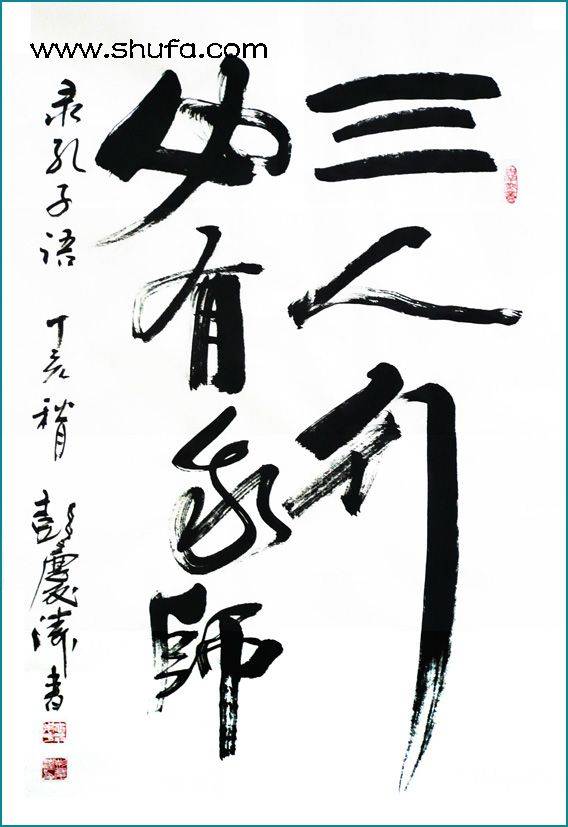 www.shufa.com
三人行
必有我師
录孔子语 丁亥 彭慶涛書